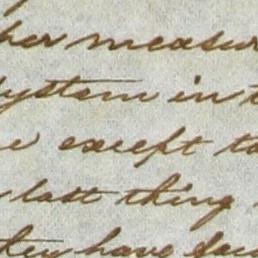 her measur
system in t
except to
last thing
they have